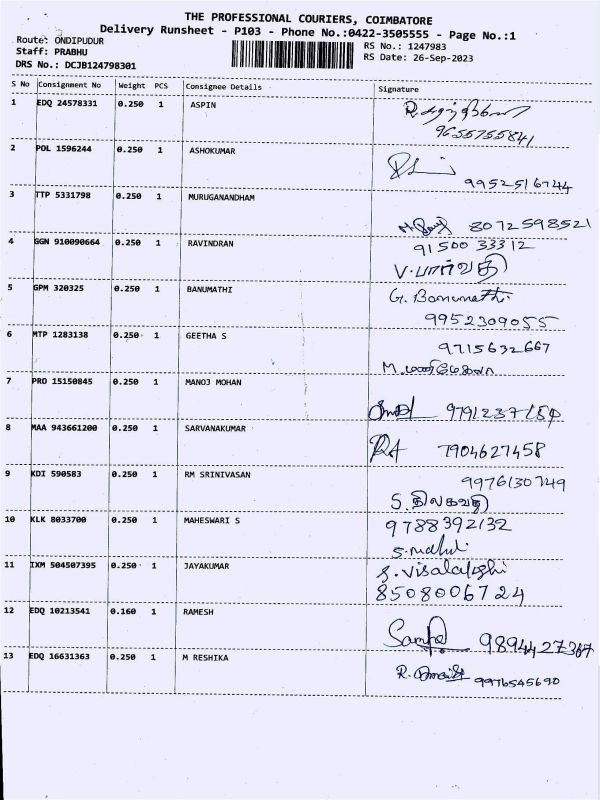 THE PROFESSIONAL COURIERS, COIMBATORE
Delivery Runsheet - P103 - Phone No.:0422-3505555 - Page No.:1
Route: ONDIPUDUR
RS No.: 1247983
Staff: PRABHU
RS Date: 26-Sep-2023
DRS No.: DCJB124798301
S No Consignment No Weight PCS Consignee Details Signature
1 EDQ 24578331 0.250 1 ASPIN
9655755841
2 POL 1596244 0.250 1 ASHOKUMAR
9952516744
3 TTP 5331798 0.250 1 MURUGANANDHAM
8072598521
4 GGN 910090664 0.250 1 RAVINDRAN 91500 33312
V. பார்வதி
5 GPM 320325 0.250 1 BANUMATHI G. Banumathi
9952309055
6 MTP 1283138 0.250 1 GEETHA S 9715632667
M.
7 PRO 15150845 0.250 1 MANOJ MOHAN
8 MAA 943661200 0.250 1 SARVANAKUMAR 7904627458
9 KDI 590583 0.250 1 RM SRINIVASAN 9976130749
S. திலகவதி
10 KLK 8033700 0.250 1 MAHESWARI S 9788392132
11 IXM 504507395 0.250 1 JAYAKUMAR S. Visalatchi
8508006724
12 EDQ 10213541 0.160 1 RAMESH
9894427367
13 EDQ 16631363 0.250 1 M RESHIKA
9976545690